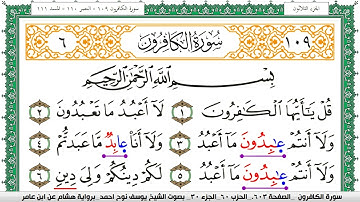 الجزء الثلاثون
سورة الكافرون ١٠٩ - النصر ١١٠ - المسد ١١١
٦ سُورَةُ الْكَافِرُونَ ١٠٩
بِسْمِ اللَّهِ الرَّحْمَٰنِ الرَّحِيمِ
قُلْ يَٰٓأَيُّهَا الْكَٰفِرُونَ ١ لَآ أَعْبُدُ مَا تَعْبُدُونَ ٢
وَلَآ أَنتُمْ عَٰبِدُونَ مَآ أَعْبُدُ ٣ وَلَآ أَنَا۠ عَابِدٌ مَّا عَبَدتُّمْ ٤
وَلَآ أَنتُمْ عَٰبِدُونَ مَآ أَعْبُدُ ٥ لَكُمْ دِينُكُمْ وَلِيَ دِينِ ٦
سورة الكافرون الصفحة ٦٠٣ الحزب ٦٠ الجزء ٣٠ بصوت الشيخ يوسف نوح احمد برواية هشام عن ابن عامر